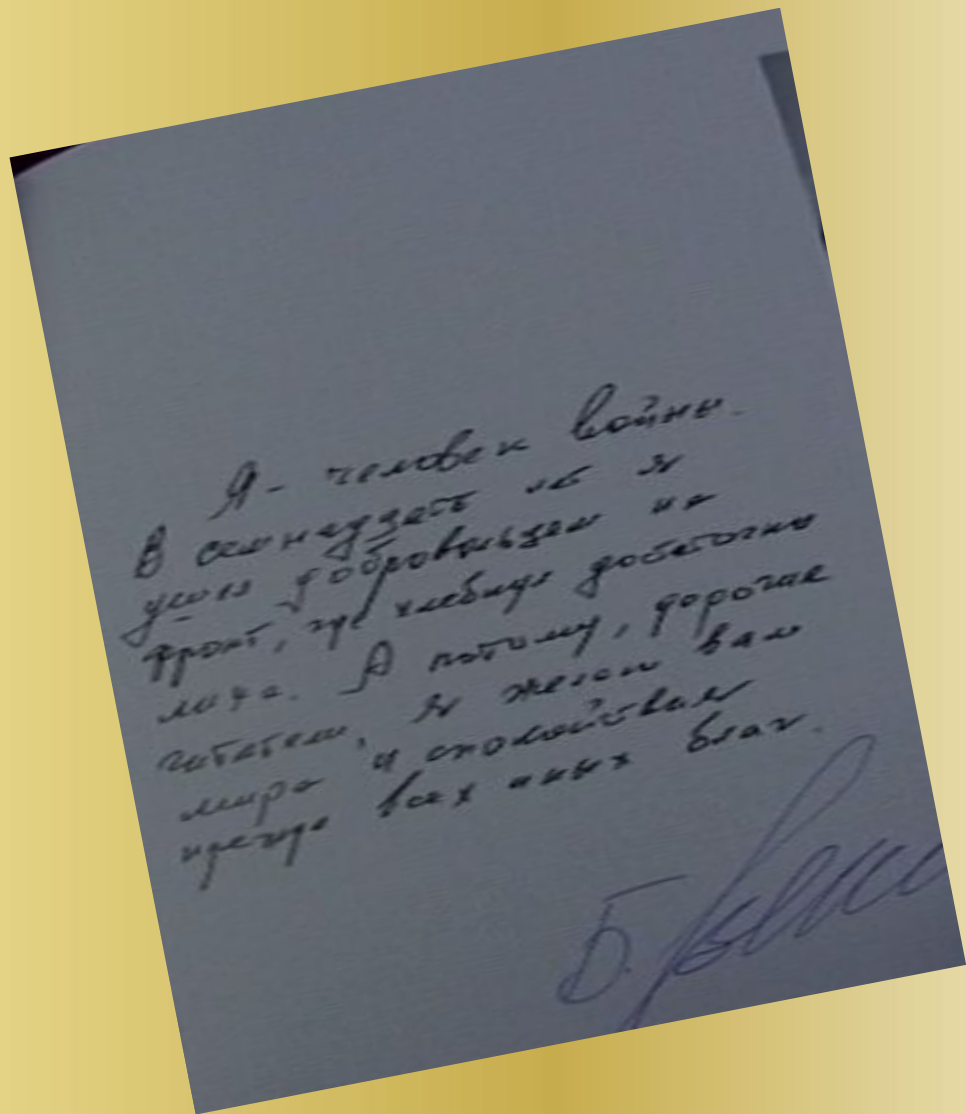 Я - человек войны.
В семнадцать лет я
ушел добровольцем на
фронт, где хлебнул достаточно
лиха. А потому, дорогие
читатели, я желаю вам
мира и спокойствия
прежде всех иных благ.
Б.